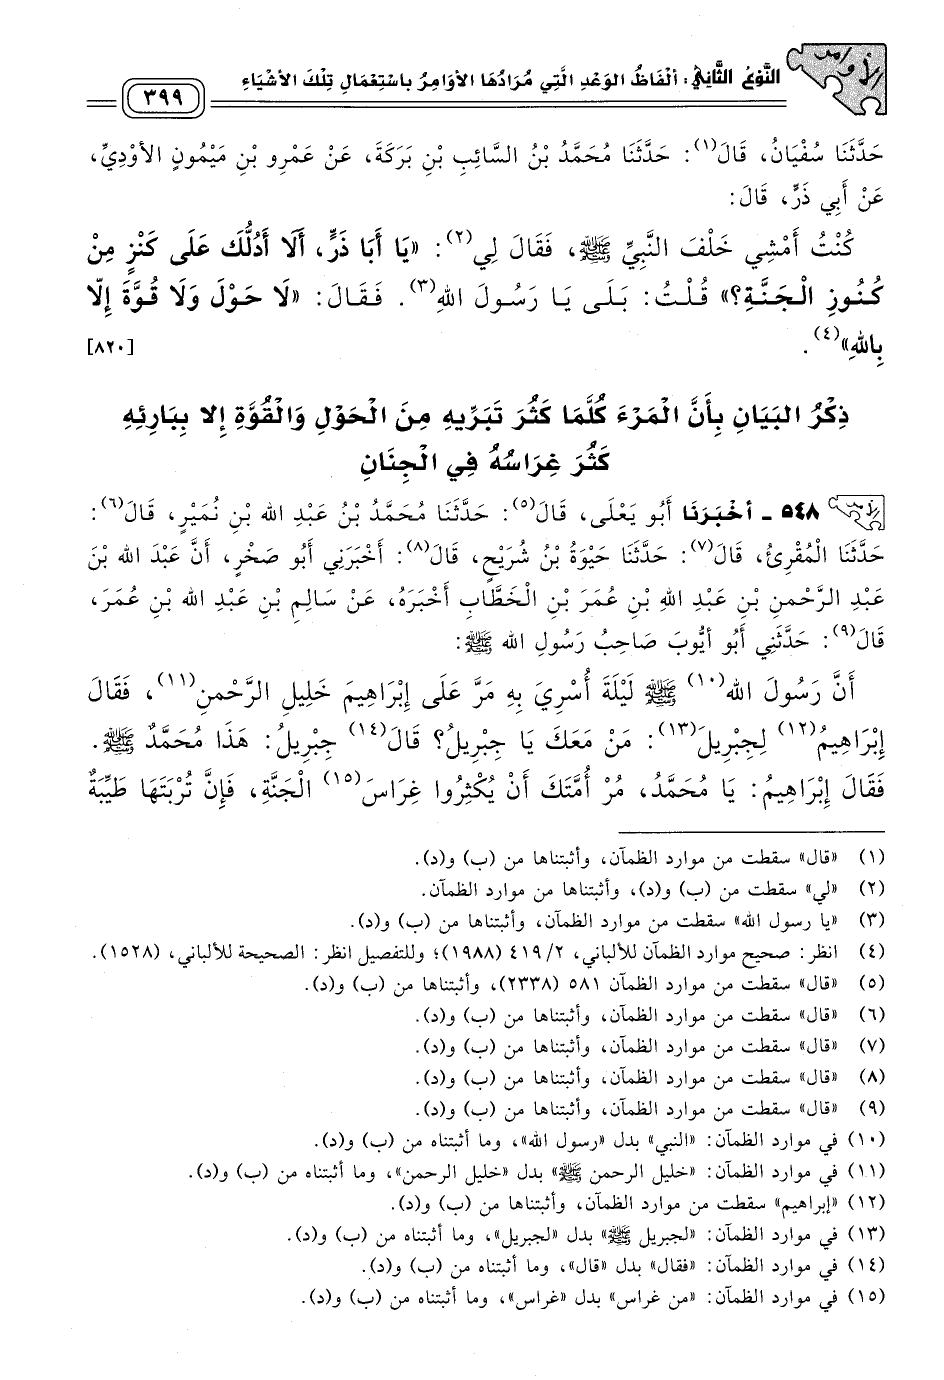 الأوامر
النَّوْعُ الثَّانِيْ: أَلْفَاظُ الوَعْدِ الَّتِي مُرَادُهَا الأَوَامِرُ بِاسْتِعْمَالِ تِلْكَ الأَشْيَاءِ
٣٩٩
حَدَّثَنَا سُفْيَانُ، قَالَ(١): حَدَّثَنَا مُحَمَّدُ بْنُ السَّائِبِ بْنِ بَرَكَةَ، عَنْ عَمْرِو بْنِ مَيْمُونٍ الأَوْدِيِّ،
عَنْ أَبِي ذَرٍّ، قَالَ:
كُنْتُ أَمْشِي خَلْفَ النَّبِيِّ ﷺ، فَقَالَ لِي(٢): «يَا أَبَا ذَرٍّ، أَلَا أَدُلُّكَ عَلَى كَنْزٍ مِنْ
كُنُوزِ الْجَنَّةِ؟» قُلْتُ: بَلَى يَا رَسُولَ اللهِ(٣). فَقَالَ: «لَا حَوْلَ وَلَا قُوَّةَ إِلّا
بِاللهِ»(٤). [٨٢٠]
ذِكْرُ البَيَانِ بِأَنَّ الْمَرْءَ كُلَّمَا كَثُرَ تَبَرِّيهِ مِنَ الْحَوْلِ وَالْقُوَّةِ إِلا بِبَارِئِهِ
كَثُرَ غِرَاسُهُ فِي الْجِنَانِ
٥٤٨ - أخْبَرَنَا أَبُو يَعْلَى، قَالَ(٥): حَدَّثَنَا مُحَمَّدُ بْنُ عَبْدِ الله بْنِ نُمَيْرٍ، قَالَ(٦):
حَدَّثَنَا الْمُقْرِئُ، قَالَ(٧): حَدَّثَنَا حَيْوَةُ بْنُ شُرَيْحٍ، قَالَ(٨): أَخْبَرَنِي أَبُو صَخْرٍ، أَنَّ عَبْدَ الله بْنَ
عَبْدِ الرَّحْمنِ بْنِ عَبْدِ اللهِ بْنِ عُمَرَ بْنِ الْخَطَّابِ أَخْبَرَهُ، عَنْ سَالِمِ بْنِ عَبْدِ الله بْنِ عُمَرَ،
قَالَ(٩): حَدَّثَنِي أَبُو أَيُّوبَ صَاحِبُ رَسُولِ الله ﷺ:
أَنَّ رَسُولَ الله(١٠) ﷺ لَيْلَةَ أُسْرِيَ بِهِ مَرَّ عَلَى إِبْرَاهِيمَ خَلِيلِ الرَّحْمنِ(١١)، فَقَالَ
إِبْرَاهِيمُ(١٢) لِجِبْرِيلَ(١٣): مَنْ مَعَكَ يَا جِبْرِيلُ؟ قَالَ(١٤) جِبْرِيلُ: هَذَا مُحَمَّدٌ ﷺ.
فَقَالَ إِبْرَاهِيمُ: يَا مُحَمَّدُ، مُرْ أُمَّتَكَ أَنْ يُكْثِرُوا غِرَاسَ(١٥) الْجَنَّةِ، فَإِنَّ تُرْبَتَهَا طَيِّبَةٌ
(١) «قال» سقطت من موارد الظمآن، وأثبتناها من (ب) و(د).
(٢) «لي» سقطت من (ب) و(د)، وأثبتناها من موارد الظمآن.
(٣) «يا رسول الله» سقطت من موارد الظمآن، وأثبتناها من (ب) و(د).
(٤) انظر: صحيح موارد الظمآن للألباني، ٢/ ٤١٩ (١٩٨٨)؛ وللتفصيل انظر: الصحيحة للألباني، (١٥٢٨).
(٥) «قال» سقطت من موارد الظمآن ٥٨١ (٢٣٣٨)، وأثبتناها من (ب) و(د).
(٦) «قال» سقطت من موارد الظمآن، وأثبتناها من (ب) و(د).
(٧) «قال» سقطت من موارد الظمآن، وأثبتناها من (ب) و(د).
(٨) «قال» سقطت من موارد الظمآن، وأثبتناها من (ب) و(د).
(٩) «قال» سقطت من موارد الظمآن، وأثبتناها من (ب) و(د).
(١٠) في موارد الظمآن: «النبي» بدل «رسول الله»، وما أثبتناه من (ب) و(د).
(١١) في موارد الظمآن: «خليل الرحمن ﷺ» بدل «خليل الرحمن»، وما أثبتناه من (ب) و(د).
(١٢) «إبراهيم» سقطت من موارد الظمآن، وأثبتناها من (ب) و(د).
(١٣) في موارد الظمآن: «لجبريل ﷺ» بدل «لجبريل»، وما أثبتناه من (ب) و(د).
(١٤) في موارد الظمآن: «فقال» بدل «قال»، وما أثبتناه من (ب) و(د).
(١٥) في موارد الظمآن: «من غراس» بدل «غراس»، وما أثبتناه من (ب) و(د).